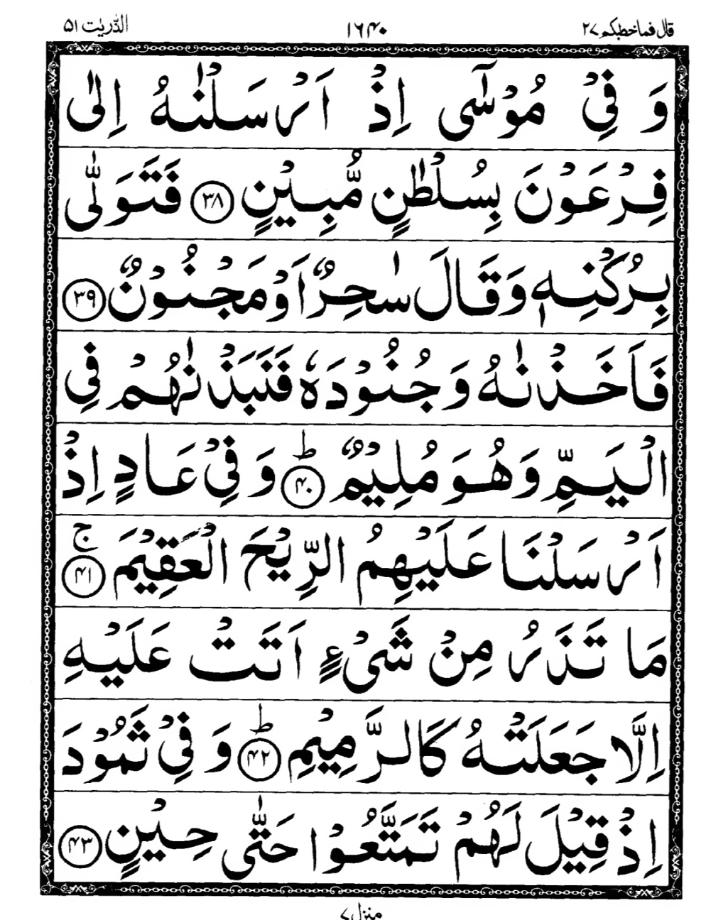 قال فماخطبکم ۲۷ ۱۶۴۰ الذّٰریٰت ۵۱
وَ فِیْ مُوْسٰۤی اِذْ اَرْسَلْنٰهُ اِلٰی
فِرْعَوْنَ بِسُلْطٰنٍ مُّبِیْنٍ ﴿۳۸﴾ فَتَوَلّٰی
بِرُكْنِهٖ وَقَالَ سٰحِرٌ اَوْ مَجْنُوْنٌ ﴿۳۹﴾
فَاَخَذْنٰهُ وَ جُنُوْدَهٗ فَنَبَذْنٰهُمْ فِی
الْیَمِّ وَ هُوَ مُلِیْمٌ ﴿۴۰﴾ؕ وَ فِیْ عَادٍ اِذْ
اَرْسَلْنَا عَلَیْهِمُ الرِّیْحَ الْعَقِیْمَ ﴿۴۱﴾ۚ
مَا تَذَرُ مِنْ شَیْءٍ اَتَتْ عَلَیْهِ
اِلَّا جَعَلَتْهُ كَالرَّمِیْمِ ﴿۴۲﴾ؕ وَ فِیْ ثَمُوْدَ
اِذْ قِیْلَ لَهُمْ تَمَتَّعُوْا حَتّٰی حِیْنٍ ﴿۴۳﴾
منزل ۷